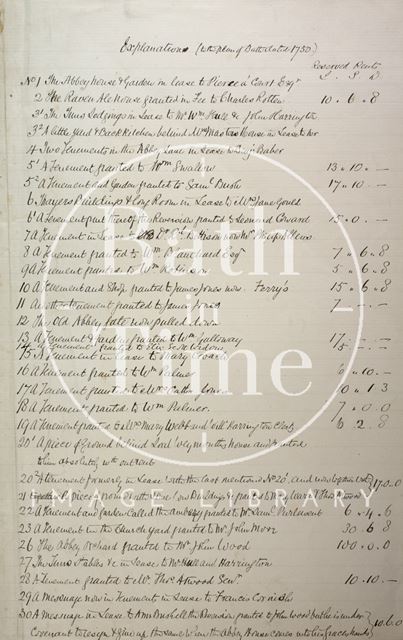 Explanations (to the plan of Bath dated 1750)
Reserved Rents
£ S D
No 1 The Abbey house & Garden in lease to Pierce a Court Esqr
2 The Raven Ale house granted in Fee to Charles Rotten 10 . 6 . 8
3 The Inns Lodgings in Lease to Mr Wm Hull & John Harrington
3 2 A little yard & Back Kitchen behind house in Lease to
4 Two Tenements in the Abbey Lane in Lease to Benj Baber
5 1 A Tenement granted to Wm Swallow 13 . 10 . —
5 2 A Tenement and Garden granted to Saml Bush 17 . 10 . —
6 Thayers Buildings & Long Room in Lease to Mrs Jane Gould
6 2 A Tenement granted the Reversion granted to Leonard Coward 15 . 0 . —
7 A Tenement in Lease
8 A Tenement granted to Wm Blanchard Esqr 7 . 6 . 8
9 A Tenement granted to Robinson 5 . 6 . 8
10 A Tenement and Shop granted to James Jones now Terry's 15 . 6 . 8
11 Another tenement granted to James Jones 7 . — . —
12 The Old Abbey Gate now pulled down
13 A Tenement and Yard granted to Wm Galloway 17 . — . —
14 A Tenement granted to 5 . — . —
15 A Tenement in Lease to Mary Coward
16 A Tenement granted to Wm Helmer 10 . —
17 A Tenement granted to Mrs Cath Jones 0 . 13
18 A Tenement granted to Wm Helmer 7 . 0 . 0
19 A Tenement granted to Mrs Mary Webb and Harrington 2 . 8
20 1 A piece of Ground behind Lord Weymouths House and granted
to him absolutely without rent
20 2 A tenement formerly in Lease with the last mentioned No 20 1 and now 17 . 0 . 0
21
22 A Tenement and Garden Called the Ambury granted to Mr Saml Purlewent 6 . 4 . 6
23 A Tenement in the Churchyard granted to Mr John Morr 30 . 6 . 8
26 The Abbey Orchard granted to Mr John Wood 100 . 0 . 0
27 The Inns Stables &c in lease to Mr Hull and Harrington
28 A Tenement granted to Mr Thos Atwood Senr 10 . 10 . —
29 A Messuage now in Tenement in Lease to Francis Cornish
30 A Messuage in Lease to Ann Bushell the Reversion granted to John Wood but he is under 10 . 6 . 0
Covenant to resign & give up the same when the Abbey House comes into his Grace's hands
Bath in Time
IMAGE LIBRARY